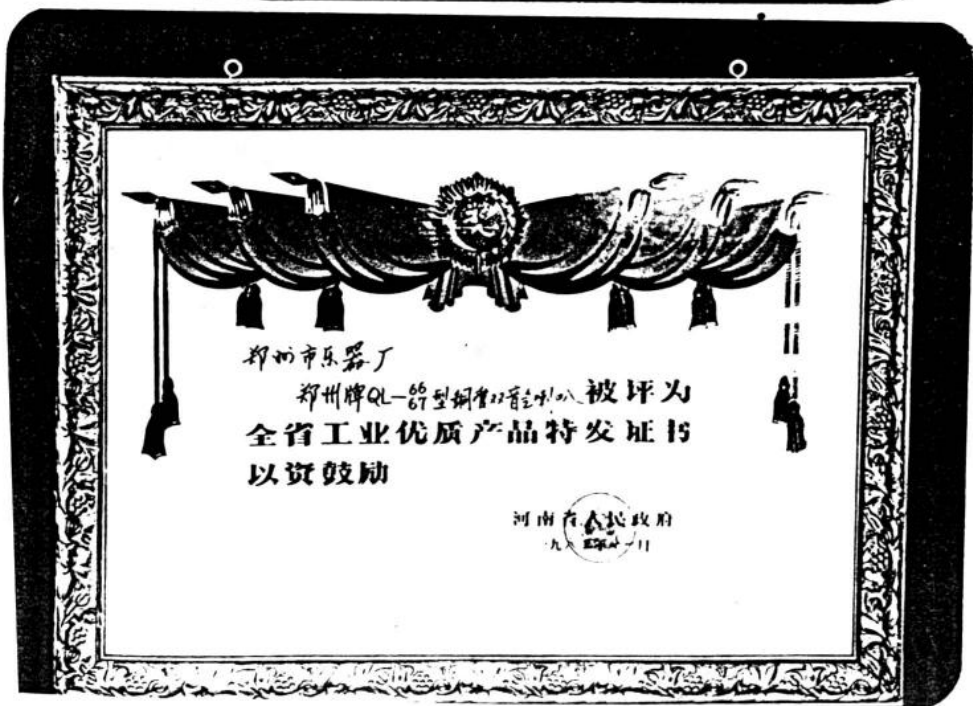 郑州市乐器厂
郑州牌QL—66/67型铜管双音全喇叭被评为
全省工业优质产品特发证书
以资鼓励
河南省人民政府